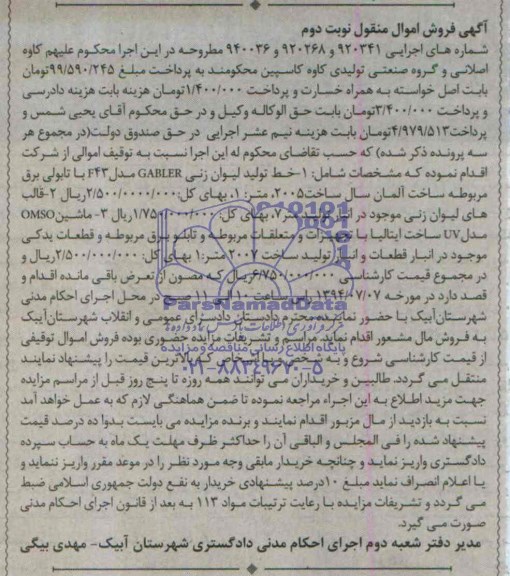 آگهی فروش اموال منقول نوبت دوم
شماره های اجرایی ۹۲۰۳۴۱ و ۹۲۰۲۶۸ و ۹۴۰۰۳۶ مطروحه در این اجرا محکوم علیهم کاوه
اصلانی و گروه صنعتی تولیدی کاوه کاسپین محکومند به پرداخت مبلغ ۹۹/۵۹۰/۲۴۵تومان
بابت اصل خواسته به همراه خسارت و پرداخت ۱/۴۰۰/۰۰۰تومان هزینه بابت هزینه دادرسی
و پرداخت ۳/۴۰۰/۰۰۰تومان بابت حق الوکاله وکیل و در حق محکوم آقای یحیی شمس و
پرداخت۴/۹۷۹/۵۱۳تومان بابت هزینه نیم عشر اجرایی در حق صندوق دولت(در مجموع هر
سه پرونده ذکر شده) که حسب تقاضای محکوم له این اجرا نسبت به توقیف اموالی از شرکت
اقدام نموده که مشخصات شامل: ۱-خط تولید لیوان زنی GABLER مدلF۴۳ با تابولی برق
مربوطه ساخت آلمان سال ساخت۲۰۰۵، متر: ۱، بهای کل:۲/۵۰۰/۰۰۰/۰۰۰ریال ۲-قالب
های لیوان زنی موجود در انبار تولید متر۷، بهای کل: ۱/۷۵۰/۰۰۰/۰۰۰ریال ۳- ماشینOMSO
مدلUV ساخت ایتالیا با تجهیزات و متعلقات مربوطه و تابلو برق مربوطه و قطعات یدکی
موجود در انبار قطعات و انبار تولید ساخت ۲۰۰۷ متر:۱ بهای کل: ۲/۵۰۰/۰۰۰/۰۰۰ریال و
در مجموع قیمت کارشناسی ۶/۷۵۰/۰۰۰/۰۰۰ریال که مصون از تعرض باقی مانده اقدام و
قصد دارد در مورخه ۱۳۹۴/۰۷/۰۷ از ساعت ۱۰ الی ۱۱ صبح در محل اجرای احکام مدنی
شهرستان آبیک با حضور نماینده محترم دادستان دادسرای عمومی و انقلاب شهرستان آبیک
به فروش مال مشعور اقدام نماید. مراسم و تشریفات مزایده حضوری بوده فروش اموال توقیفی
از قیمت کارشناسی شروع و به شخص و یا اشخاص که بالاترین قیمت را پیشنهاد نمایند
منتقل می گردد. طالبین و خریداران می توانند همه روزه تا پنج روز قبل از مراسم مزایده
جهت مزید اطلاع به این اجراء مراجعه نموده تا ضمن هماهنگی لازم که به عمل خواهد آمد
نسبت به بازدید از مال مزبور اقدام نمایند و برنده مزایده می بایست بدوا ده درصد قیمت
پیشنهاد شده را فی المجلس و الباقی آن را حداکثر ظرف مهلت یک ماه به حساب سپرده
دادگستری واریز نماید و چنانچه خریدار مابقی وجه مورد نظر را در موعد مقرر واریز ننماید و
یا اعلام انصراف نماید مبلغ ۱۰درصد پیشنهادی خریدار به نفع دولت جمهوری اسلامی ضبط
می گردد و تشریفات مزایده با رعایت ترتیبات مواد ۱۱۳ به بعد از قانون اجرای احکام مدنی
صورت می گیرد.
مدیر دفتر شعبه دوم اجرای احکام مدنی دادگستری شهرستان آبیک- مهدی بیگی
ParsNamadData
مرکز فرآوری اطلاعات پارس نماد داده ها
پایگاه اطلاع رسانی مناقصه و مزایده
۰۲۱-۸۸۳۴۹۶۷۰-۵